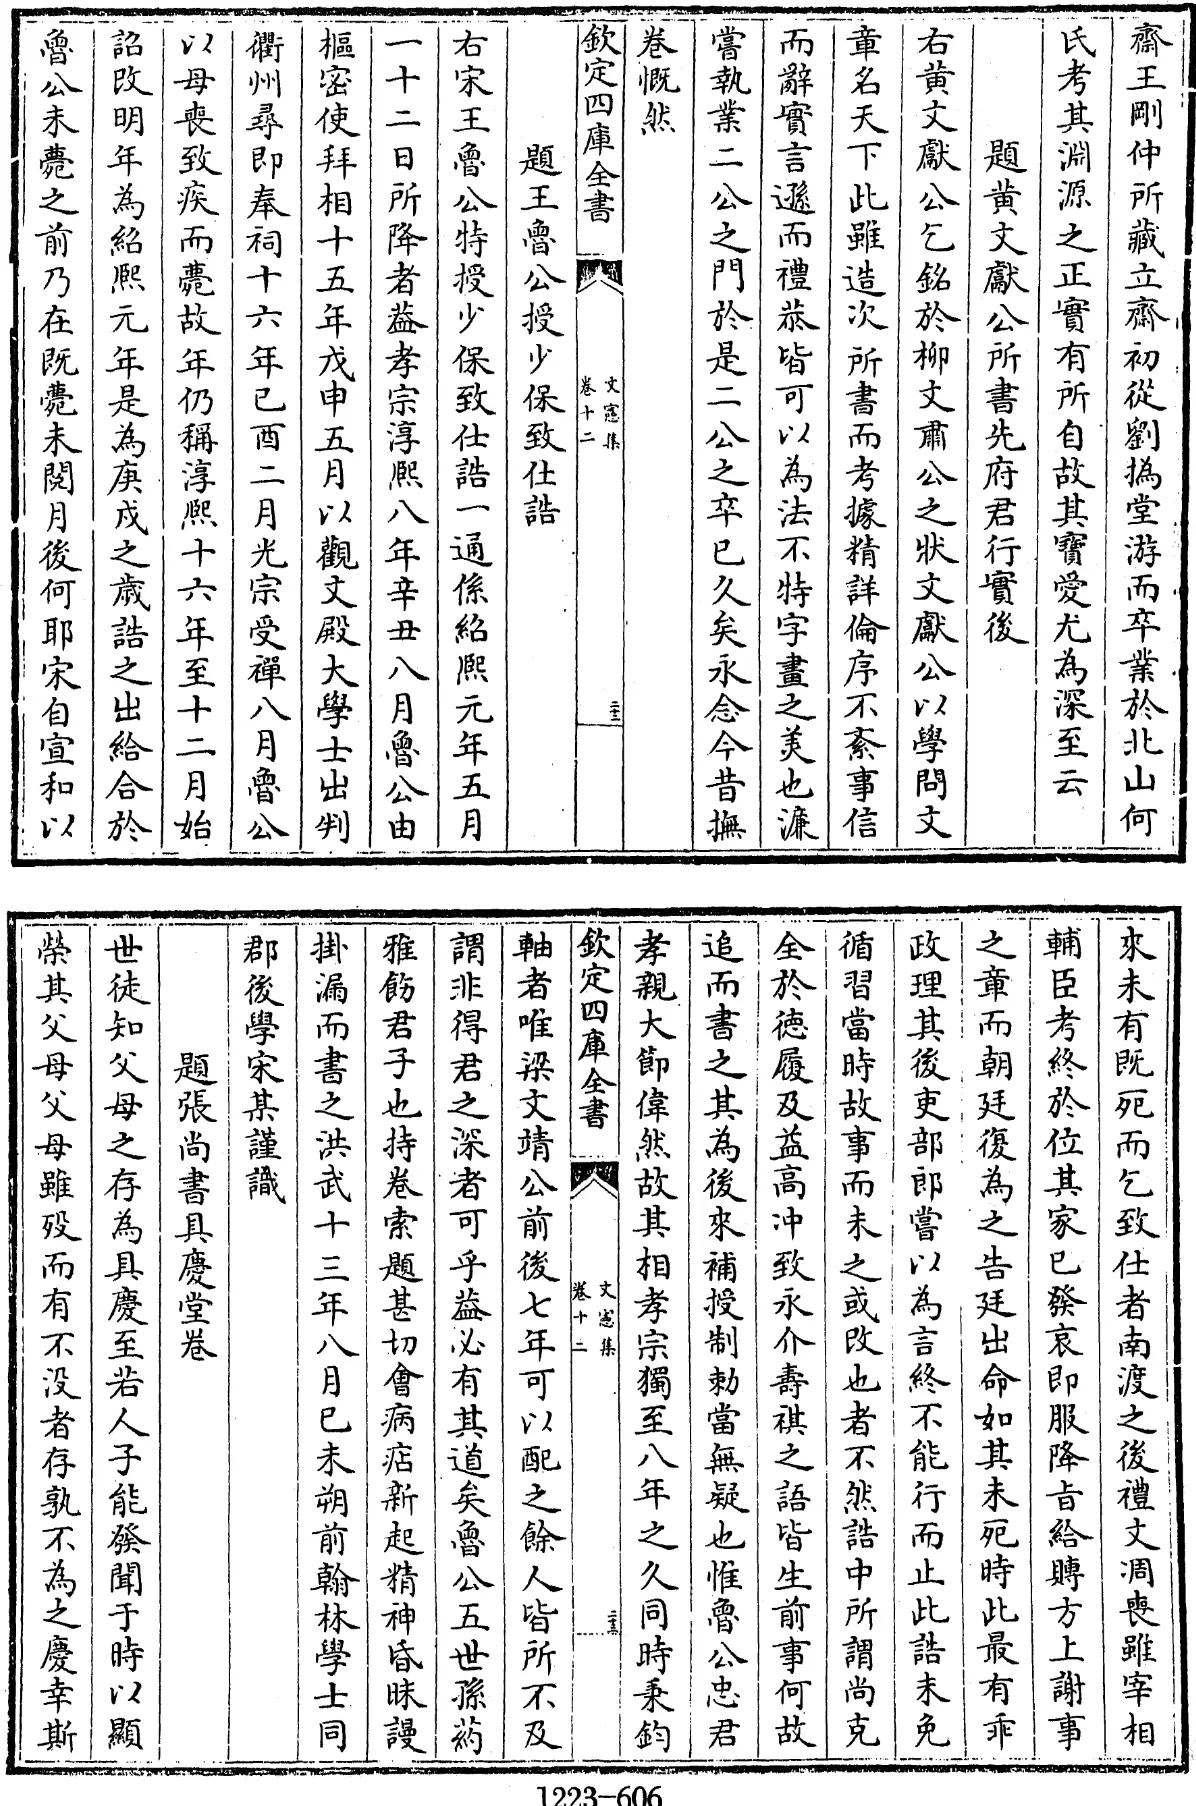 齋王剛仲所藏立齋初從劉撝堂游而卒業於北山何
氏考其淵源之正實有所自故其寶愛尤為深至云
題黄文獻公所書先府君行實後
右黄文獻公乞銘於柳文肅公之狀文獻公以學問文
章名天下此雖造次所書而考據精詳倫序不紊事信
而辭實言遜而禮恭皆可以為法不特字畫之美也濂
嘗執業二公之門於是二公之卒已久矣永念今昔撫
卷慨然
欽定四庫全書
文憲集
卷十二
二十二
題王魯公授少保致仕誥
右宋王魯公特授少保致仕誥一通係紹熙元年五月
一十二日所降者葢孝宗淳熙八年辛丑八月魯公由
樞密使拜相十五年戊申五月以觀文殿大學士出判
衢州尋即奉祠十六年已酉二月光宗受禪八月魯公
以母喪致疾而薨故年仍稱淳熙十六年至十二月始
詔改明年為紹熙元年是為庚戍之歲誥之出給合於
魯公未薨之前乃在既薨未閱月後何耶宋自宣和以
來未有既死而乞致仕者南渡之後禮文凋喪雖宰相
輔臣考終於位其家已發哀即服降旨給賻方上謝事
之章而朝廷復為之告廷出命如其未死時此最有乖
政理其後吏部郎嘗以為言終不能行而止此誥未免
循習當時故事而未之或改也者不然誥中所謂尚克
全於德履及益高冲致永介壽祺之語皆生前事何故
追而書之其為後來補授制勅當無疑也惟魯公忠君
孝親大節偉然故其相孝宗獨至八年之久同時秉鈞
欽定四庫全書
文憲集
卷十二
二十三
軸者唯梁文靖公前後七年可以配之餘人皆所不及
謂非得君之深者可乎葢必有其道矣魯公五世孫葯
雅飭君子也持卷索題甚切會病痁新起精神昏眛謾
掛漏而書之洪武十三年八月已未朔前翰林學士同
郡後學宋某謹識
題張尚書具慶堂卷
世徒知父母之存為具慶至若人子能發聞于時以顯
榮其父母父母雖歿而有不没者存孰不為之慶幸斯
1223-606